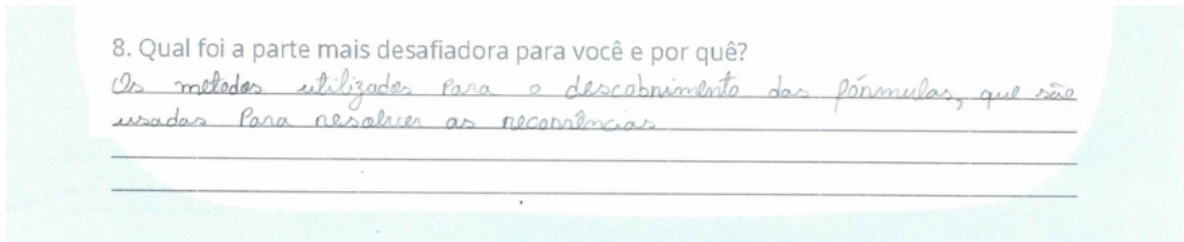 8. Qual foi a parte mais desafiadora para você e por quê?
Os metodos utilizados para o descobrimento das fórmulas, que são
usadas para resolver as recorrências